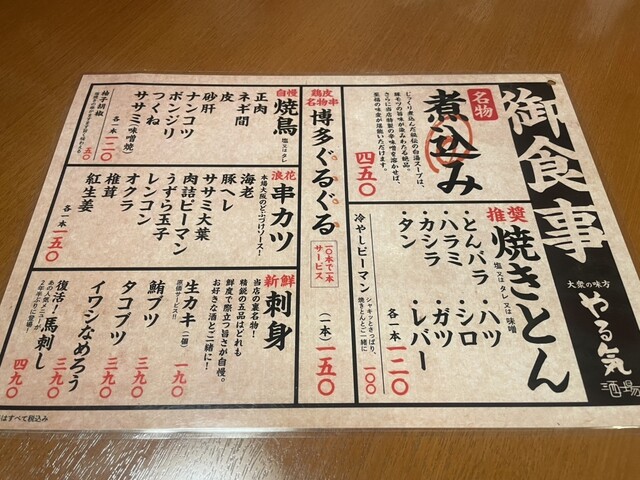 御食事
大衆の味方
やる気
酒場
名物
煮込み
じっくり煮込んだ秘伝の白湯スープは、
豚モツの旨味が染みわたる絶品。
さらに当店特製の辛味噌を溶かせば、
至福の味変が堪能いただけます。
四五〇
推奨
焼きとん
塩 又は タレ 又は 味噌
・とんバラ
・ハラミ
・カシラ
・タン
・ハツ
・シロ
・ガツ
・レバー
各一本 一二〇
冷やしピーマン
シャキッとさっぱり、
焼きとんと一緒に
一〇〇
鶏皮
名物串
博多ぐるぐる
一〇本で一本
サービス
(一本) 一五〇
自慢
焼鳥
塩 又は タレ
正肉
ネギ間
皮
砂肝
ナンコツ
ボンジリ
つくね
ササミ味噌焼
各一本 一二〇
柚子胡椒
五〇
浪花
串カツ
本場大阪のどぶづけソース!
海老
豚ヘレ
ササミ大葉
肉詰ピーマン
うずら玉子
レンコン
オクラ
椎茸
紅生姜
各一本 一五〇
新鮮
刺身
当店の裏名物!
精鋭の五品はどれも
鮮度で際立つ旨さが自慢。
お好きな酒とご一緒に!
生カキ(一個)
原価サービス!!
一九〇
鮪ブツ
三九〇
タコブツ
三九〇
イワシなめろう
三九〇
復活!馬刺し
あの人気メニューが
2年半ぶりに登場!
四九〇
はすべて税込み